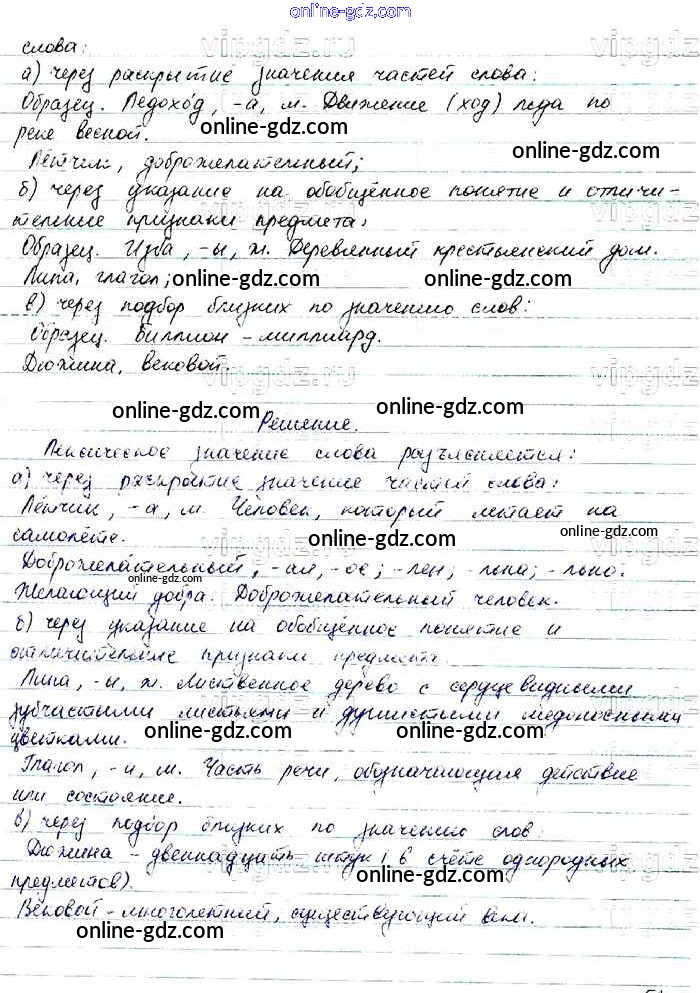 online-gdz.com
слова:
vipgdz.ru vipgdz.ru
а) через раскрытие значения частей слова:
Образец. Ледохо́д, -а, м. Движение (ход) льда по
online-gdz.com
реке весной.
online-gdz.com
Лётчик, доброжелательный;
б) через указание на обобщённое понятие и отличи-
vipgdz.ru vipgdz.ru
тельные признаки предмета.
Образец. Изба, -ы, ж. Деревянный крестьянский дом.
Липа, глагол; online-gdz.com online-gdz.com
в) через подбор близких по значению слов:
Образец. Биллион – миллиард.
Дюжина, вековой.
vipgdz.ru vipgdz.ru
online-gdz.com online-gdz.com
Решение.
Лексическое значение слова разъясняется:
а) через раскрытие значение частей слова:
Лётчик, -а, м. Человек, который летает на
самолёте. online-gdz.com online-gdz.com
Доброжела́тельный, -ая, -ое; -лен; -льна; -льно.
online-gdz.com
Желающий добра. Доброжелательный человек.
б) через указание на обобщённое понятие и
отличительные признаки предмета.
Липа, -ы, ж. Лиственное дерево с сердцевидными
зубчастыми листьями и душистыми медоносными
цветками. online-gdz.com online-gdz.com
Глагол, -а, м. Часть речи, обозначающая действие
или состояние.
в) через подбор близких по значению слов:
Дюжина – двенадцать штук (в счёте однородных
предметов). online-gdz.com
Вековой – многолетний, существующий века.
online-gdz.com